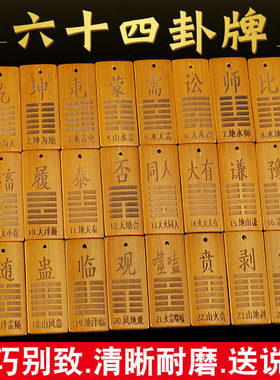 六十四卦牌
乾 坤 屯 蒙 需 讼 师 比
2.坤为地 3.水雷屯 4.山水蒙 5.水天需 6.天水讼 7.地水师 8.水地
畜 履 泰 否 同人 大有 谦 豫
10.天泽履 11.地天泰 12.天地否 13.天火同人 14.火天大有 15.地山谦 16.雷地
随 蛊 临 观 噬嗑 贲 剥
18.山风蛊 19.地泽临 20.风地观 21.火雷噬嗑 22.山火贲 23.山地剥
巧别致.清晰耐磨.送说